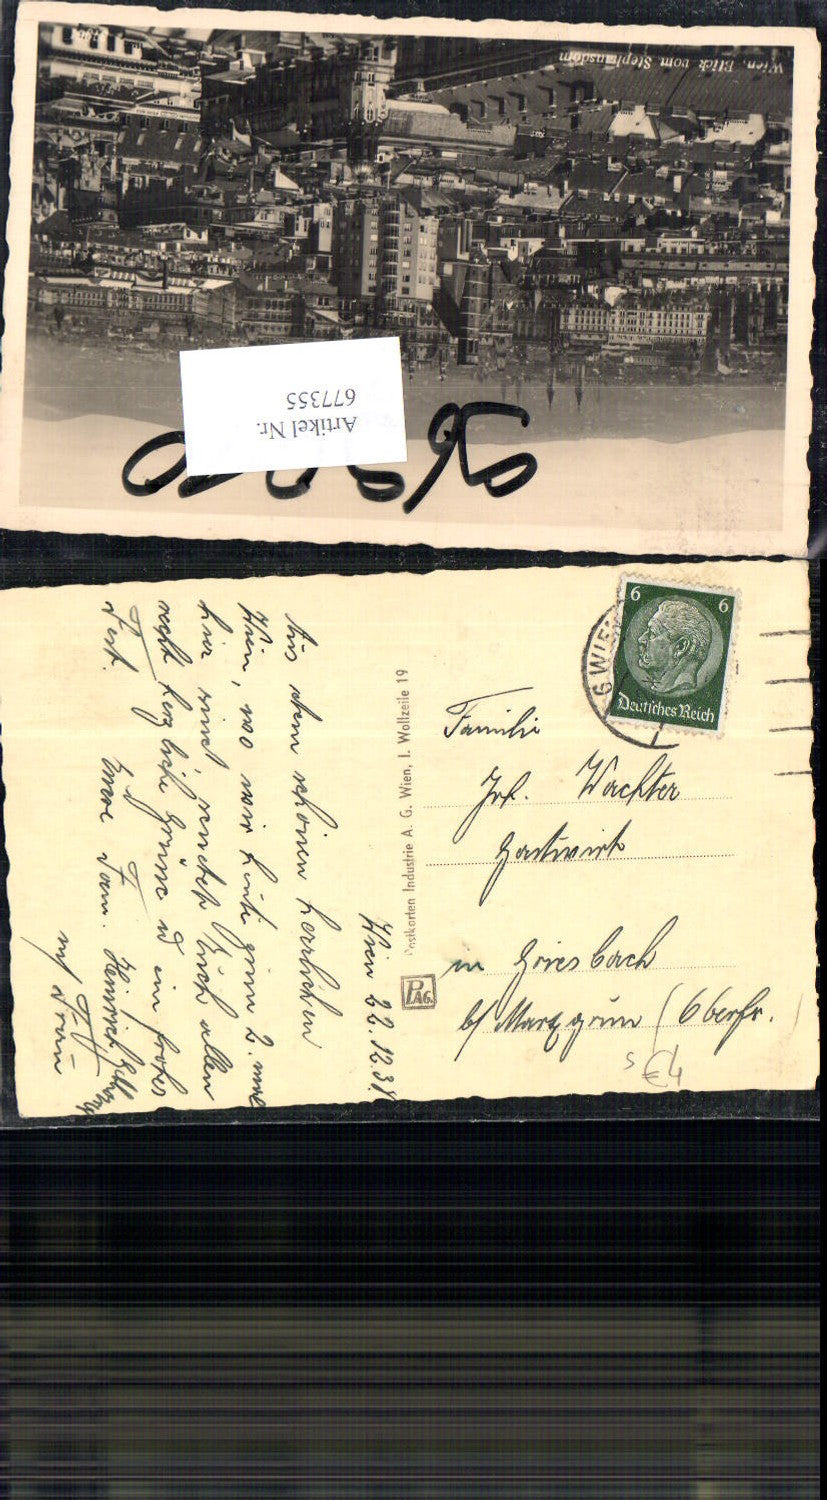 Wien. Blick vom Stephansdom
Artikel Nr.
677355
6 6
Deutsches Reich
WIEN
Familie
Jos. Wachter
Gastwirt
in Griesbach
b/ Marxgrün (Oberfr.
Postkarten Industrie A. G. Wien, I. Wollzeile 19
PAG.
Wien 22.12.38
Aus dem schönen herrlichen
Wien, wo wir heute zum 2. mal
hier sind, sendet Euch allen
recht herzliche Grüsse u ein frohes
Fest. Euere Fam. Heinrich
u. Frau